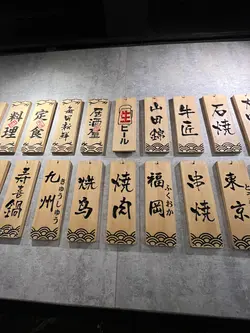 料理
定食
寿司料理
居酒屋
生ビール
山田錦
牛匠
石焼
寿喜鍋
九州
きゅうしゅう
焼鸟
焼肉
福岡
ふくおか
串焼
東京